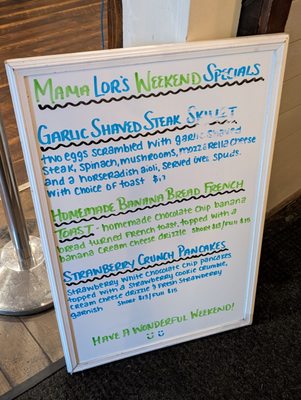 Mama Lor's Weekend Specials
Garlic Shaved Steak Skillet
two eggs scrambled with garlic shaved
steak, spinach, mushrooms, mozzarella cheese
and a horseradish aioli, served over spuds.
with choice of toast $17
Homemade Banana Bread French
Toast - homemade chocolate chip banana
bread turned French toast, topped with a
banana cream cheese drizzle Short $13/Full $15
Strawberry Crunch Pancakes
Strawberry white chocolate chip pancakes
topped with a strawberry cookie crumble,
cream cheese drizzle & fresh strawberry
garnish Short $13/Full $15
Have a Wonderful Weekend!